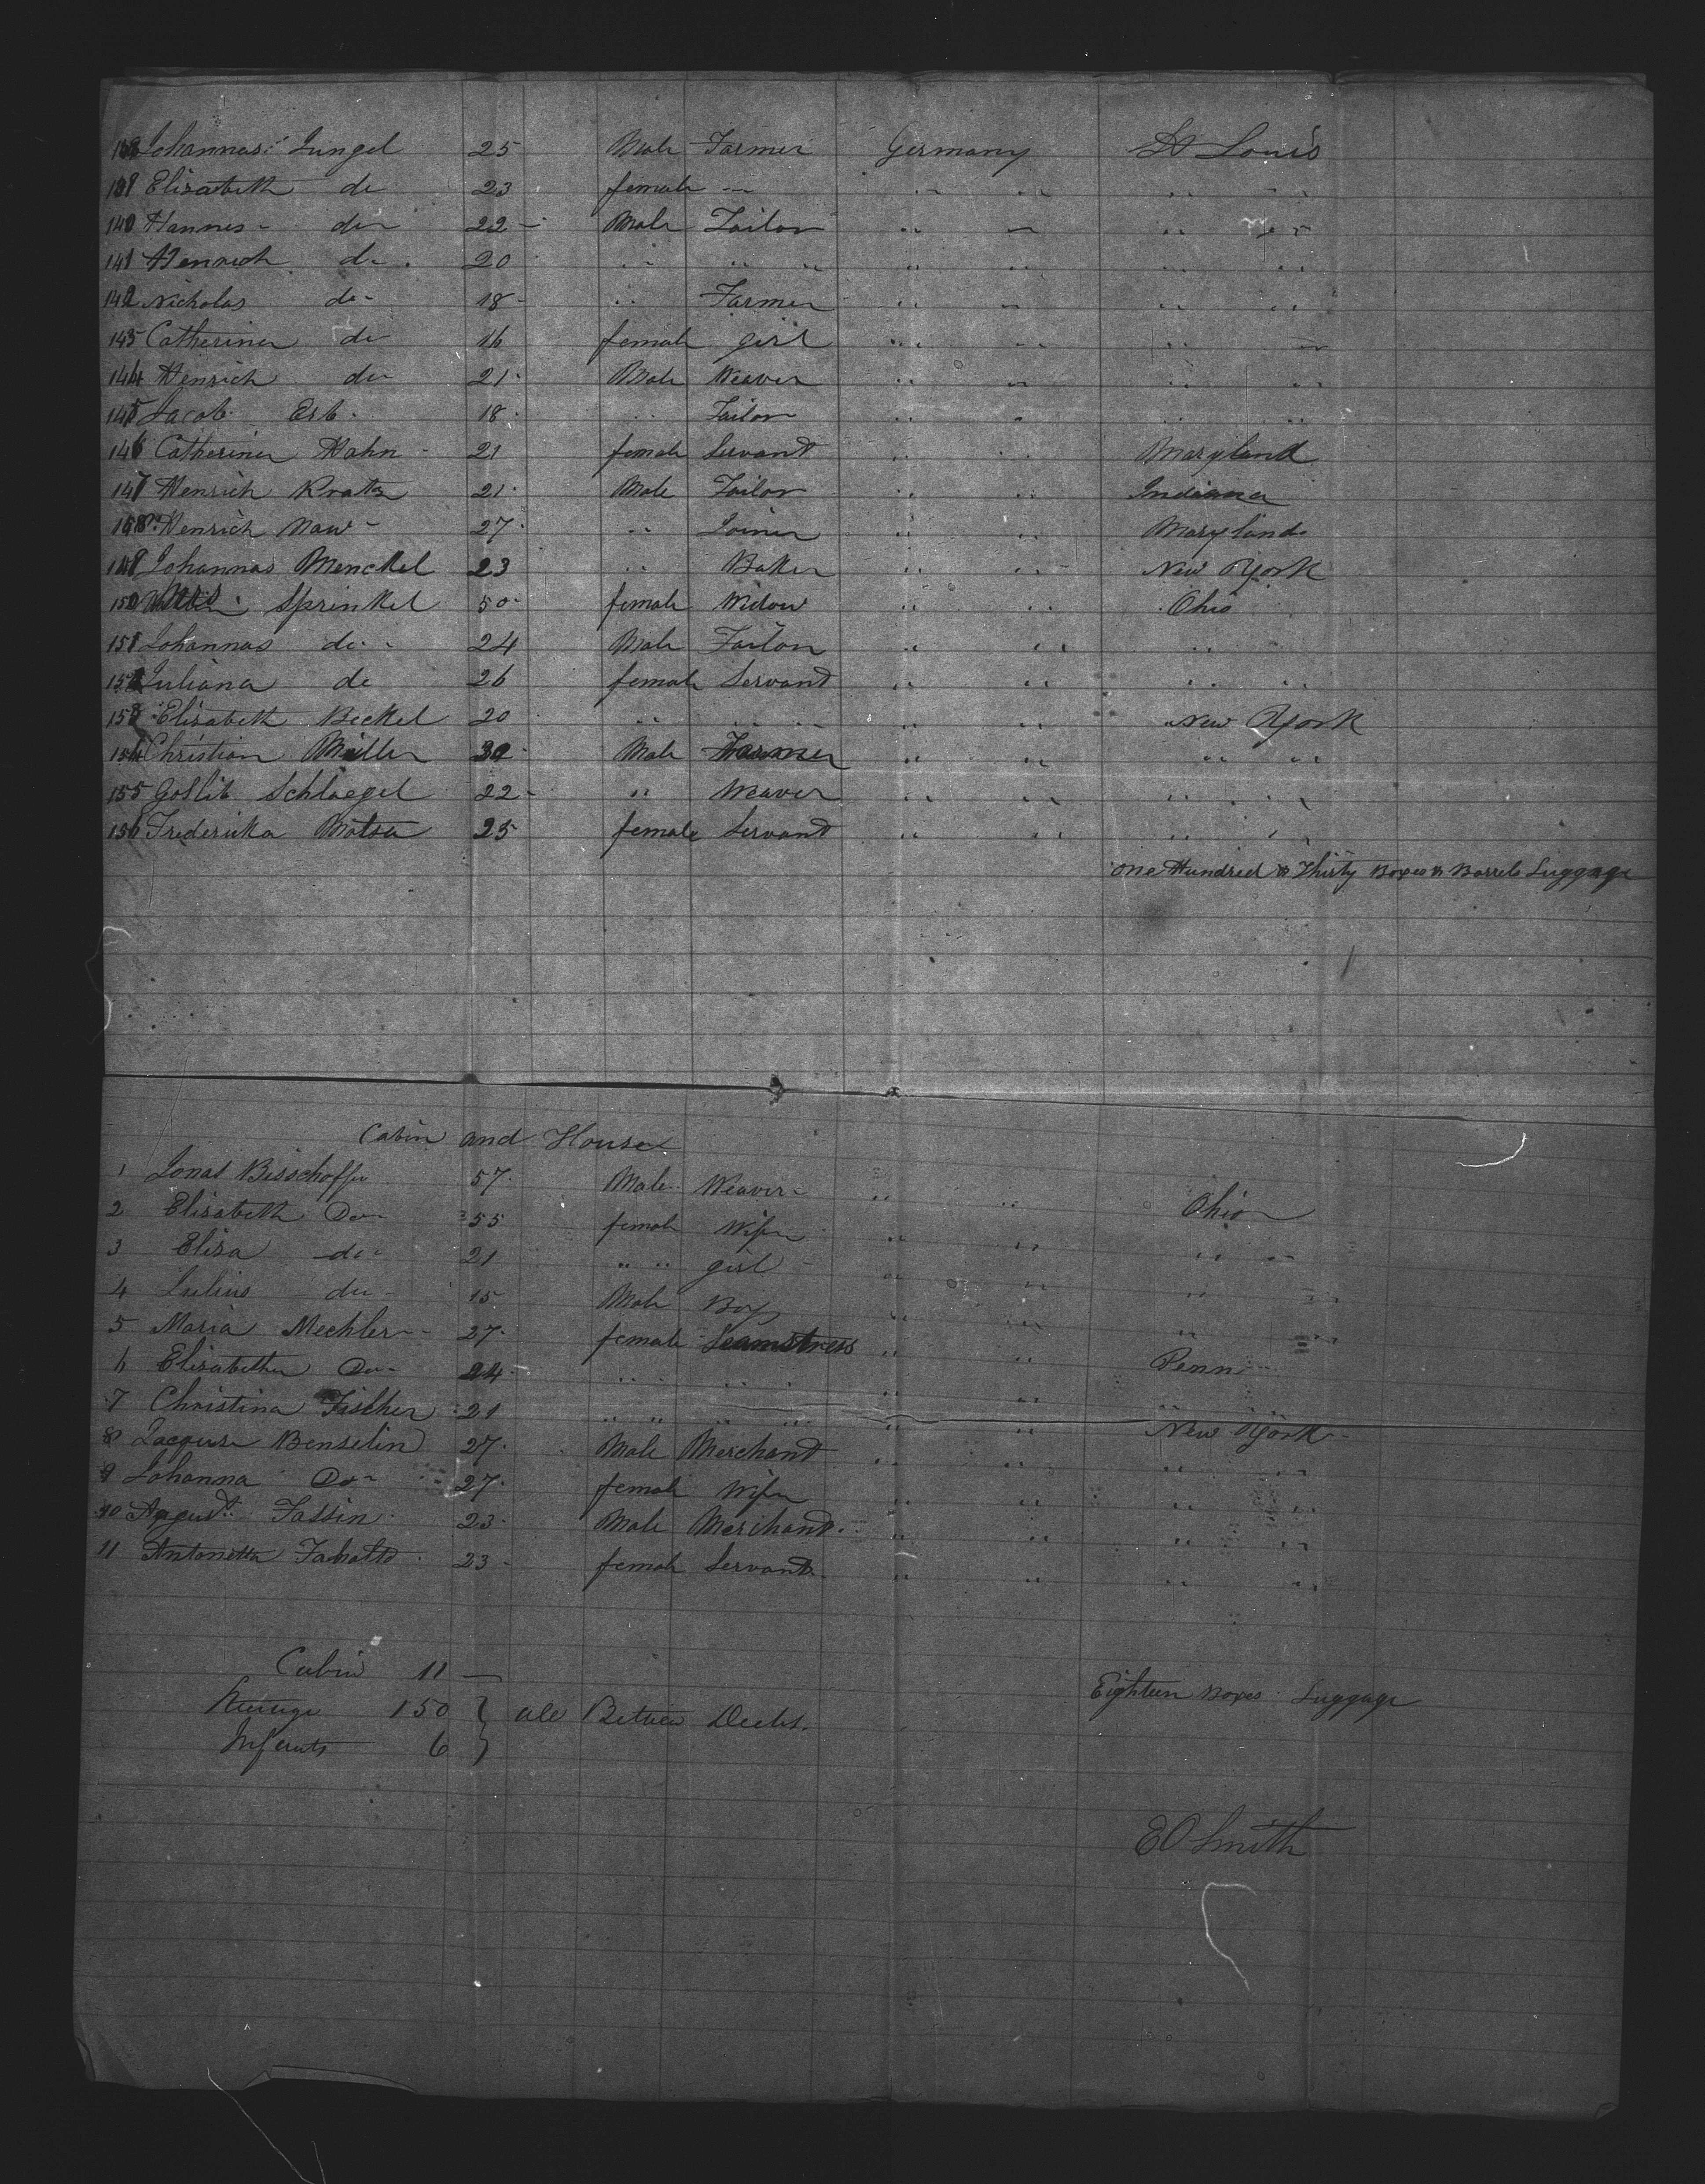 138 Johannas Jungel 25 Male Farmer Germany St Louis
139 Elisabeth do 23 female " " " " "
140 Hannes do 22 Male Tailor " " " "
141 Henrich do 20 " " " " " " "
142 Nicholas do 18 " Farmer " " " "
143 Catherina do 16 female girl " " " "
144 Henrich do 21 Male Weaver " " " "
145 Jacob Erb 18 " Tailor " " " "
146 Catherina Hahn 21 female Servant " " Maryland
147 Henrich Kratz 21 Male Tailor " " Indiana
148 Henrich Naw 27 " Joiner " " Maryland
149 Johannas Menckel 23 " Baker " " New York
150 Mrs Sprinkel 50 female Widow " " Ohio
151 Johannas do 24 Male Tailor " " "
152 Juliana do 26 female Servant " " " "
153 Elisabeth Beckel 20 " " " " " New York
154 Christian Miller 30 Male Farmer " " " "
155 Gotlib Schlaegel 22 " Weaver " " " "
156 Frederika Motsa 25 female Servant " " " "
One Hundred & Thirty Boxes & Barrels Luggage
Cabin and House
1 Jonas Bisschoffer 57 Male Weaver " " Ohio
2 Elisabeth Do 55 female Wife " " " "
3 Elisa do 21 " " girl " " " "
4 Julius do 15 Male Boy " " " "
5 Maria Mechler 27 female Seamstress " " Penn
6 Elisabetha Do 24 " " " " " " "
7 Christina Fischer 21 " " " " " " New York
8 Jacques Benselin 27 Male Merchant " " " "
9 Johanna Do 27 female Wife " " " "
10 August Fassin 23 Male Merchant " " " "
11 Antonetta 23 female Servant " " " "
Cabin 11
Steerage 150 } all Between Decks.
Infants 6
Eighteen Boxes Luggage
EO Smith